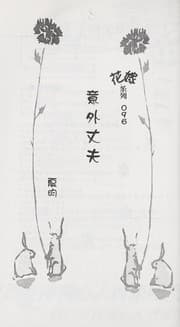 花蝶系列 096
意外丈夫
夏昀